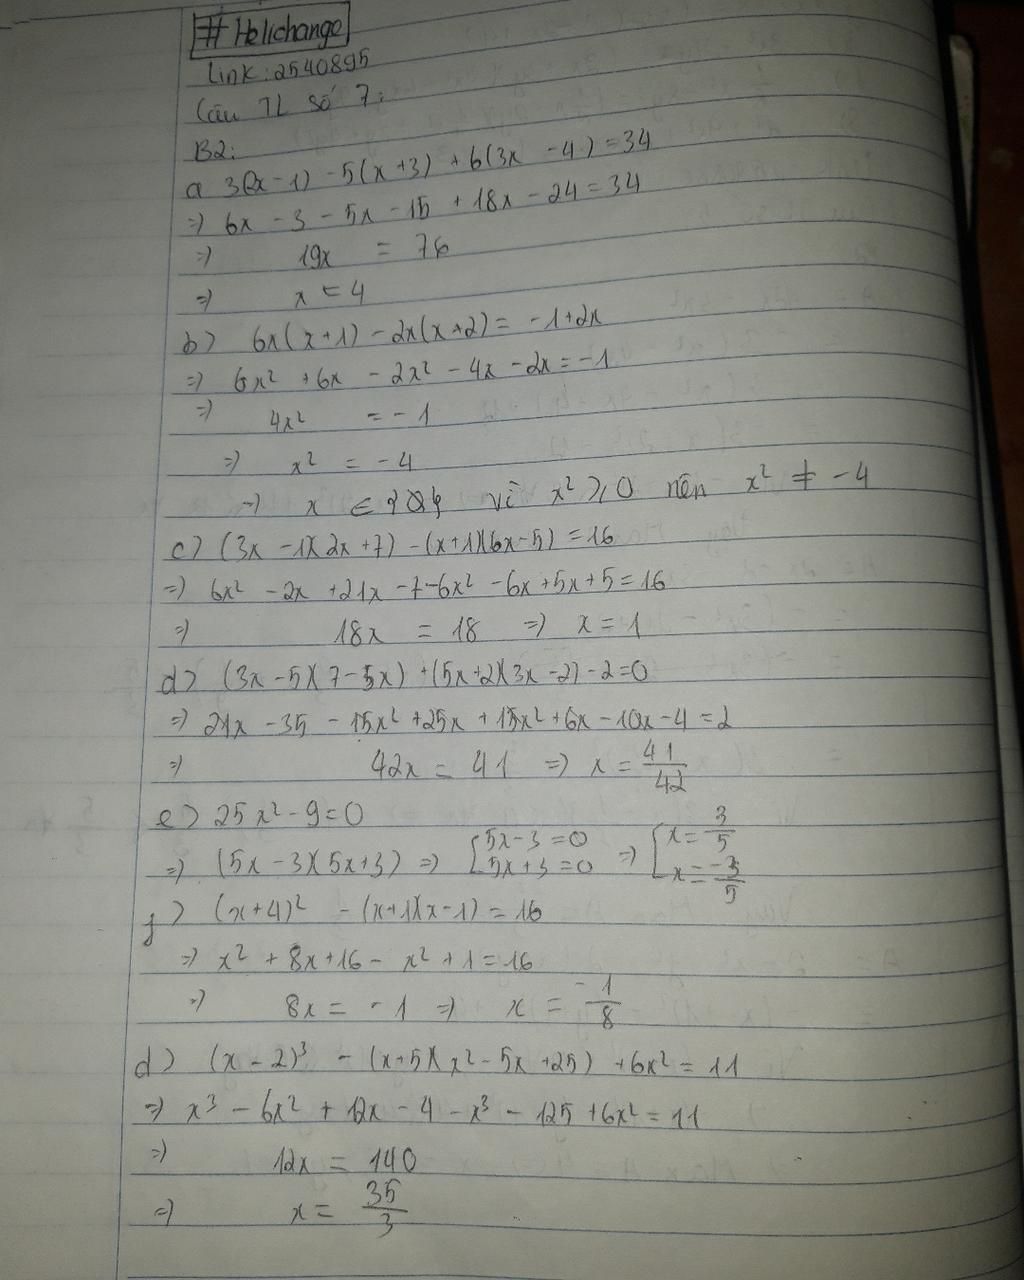 # Helichange
Link: 2540895
Câu TL số 7:
B2:
a 3(2x - 1) - 5(x + 3) + 6(3x - 4) = 34
=> 6x - 3 - 5x - 15 + 18x - 24 = 34
=> 19x = 76
=> x = 4
b) 6x(x + 1) - 2x(x + 2) = -1 + 2x
=> 6x² + 6x - 2x² - 4x - 2x = -1
=> 4x² = -1
=> x² = -4
=> x ∈ {Ø} vì x² ≥ 0 nên x² ≠ -4
c) (3x - 1)(2x + 7) - (x + 1)(6x - 5) = 16
=> 6x² - 2x + 21x - 7 - 6x² - 6x + 5x + 5 = 16
=> 18x = 18 => x = 1
d) (3x - 5)(7 - 5x) + (5x + 2)(3x - 2) - 2 = 0
=> 21x - 35 - 15x² + 25x + 15x² + 6x - 10x - 4 = 2
=> 42x = 41 => x = 41/42
e) 25x² - 9 = 0
=> (5x - 3)(5x + 3) => [5x - 3 = 0 5x + 3 = 0 => [x = 3/5 x = -3/5
f) (x + 4)² - (x + 1)(x - 1) = 16
=> x² + 8x + 16 - x² + 1 = 16
=> 8x = -1 => x = -1/8
d) (x - 2)³ - (x + 5)(x² - 5x + 25) + 6x² = 11
=> x³ - 6x² + 12x - 4 - x³ - 125 + 6x² = 11
=> 12x = 140
=> x = 35/3